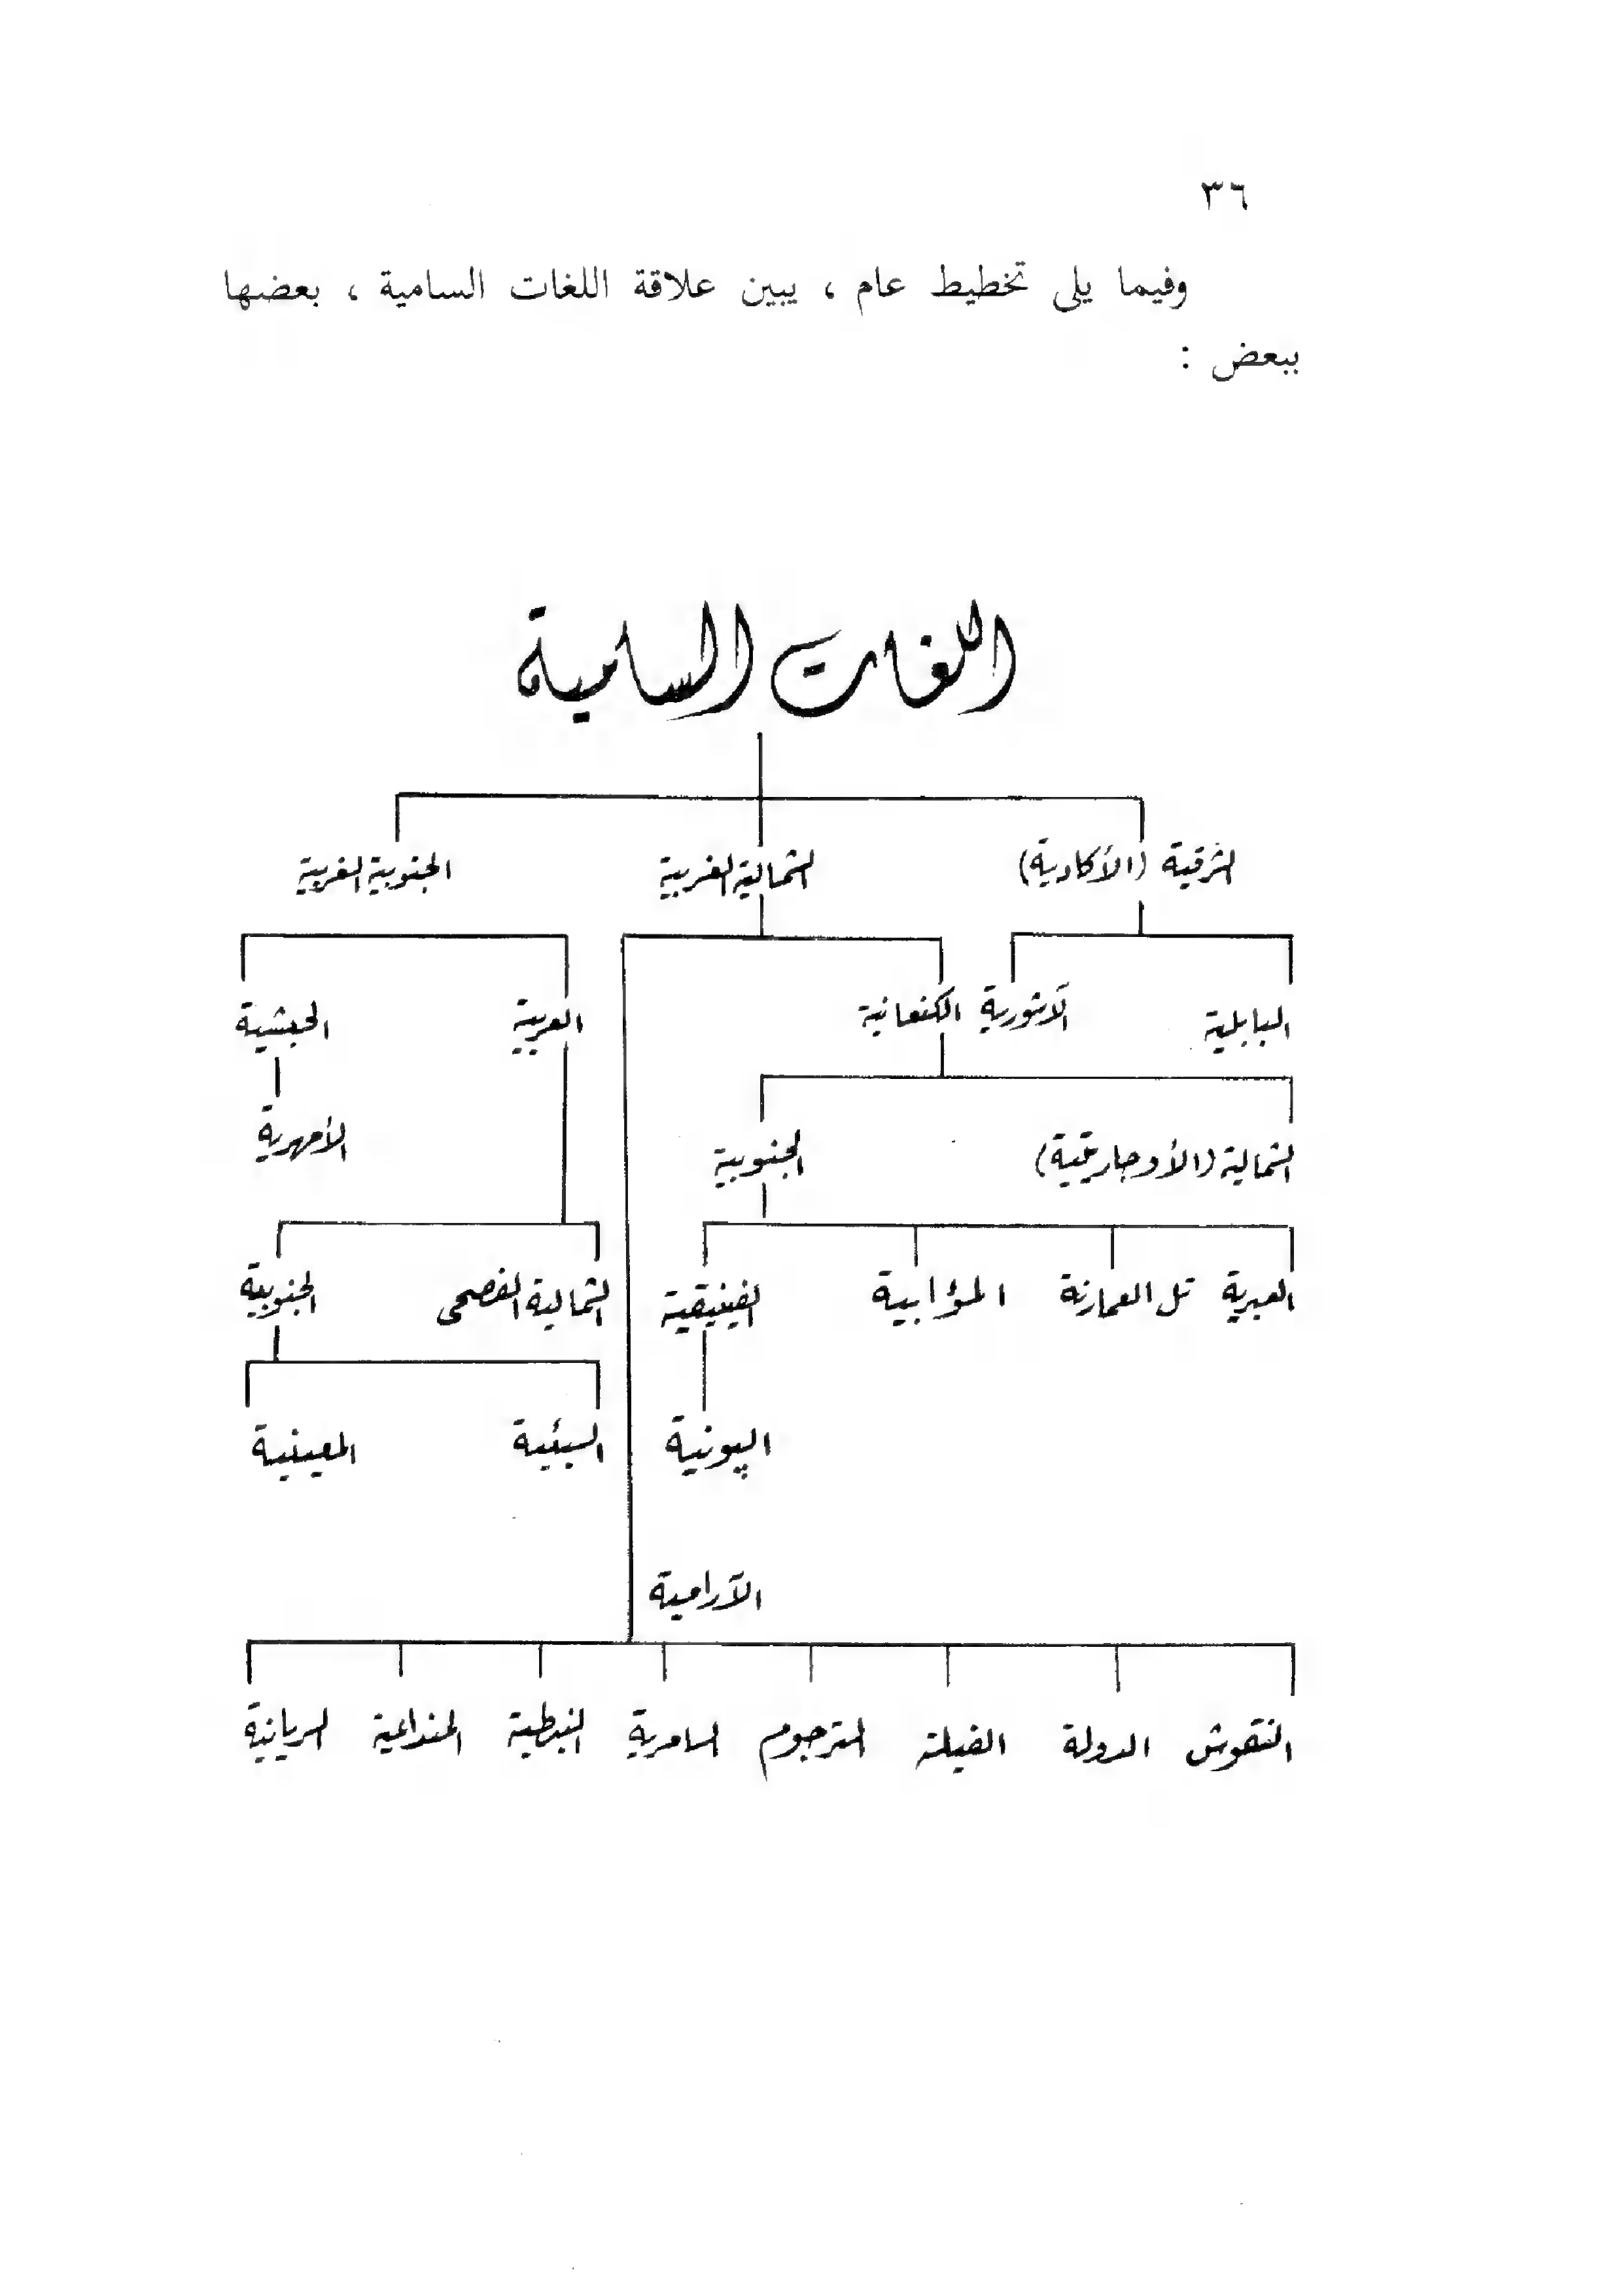 ٣٦
وفيما يلى تخطيط عام ، يبين علاقة اللغات السامية ، بعضها
ببعض :
اللغات السامية
الشرقية (الأكادية) الشمالية الغربية الجنوبية الغربية
البابلية الآشورية الكنعانية العربية الحبشية
الشمالية (الأوجاريتية) الجنوبية الأمهرية
العبرية تل العمارنة المؤابية الفينيقية الشمالية الفصحى الجنوبية
الپونية السبئية المعينية
الآرامية
النقوش الدولة الفيلة الترجوم السامرية النبطية المنداعية السريانية